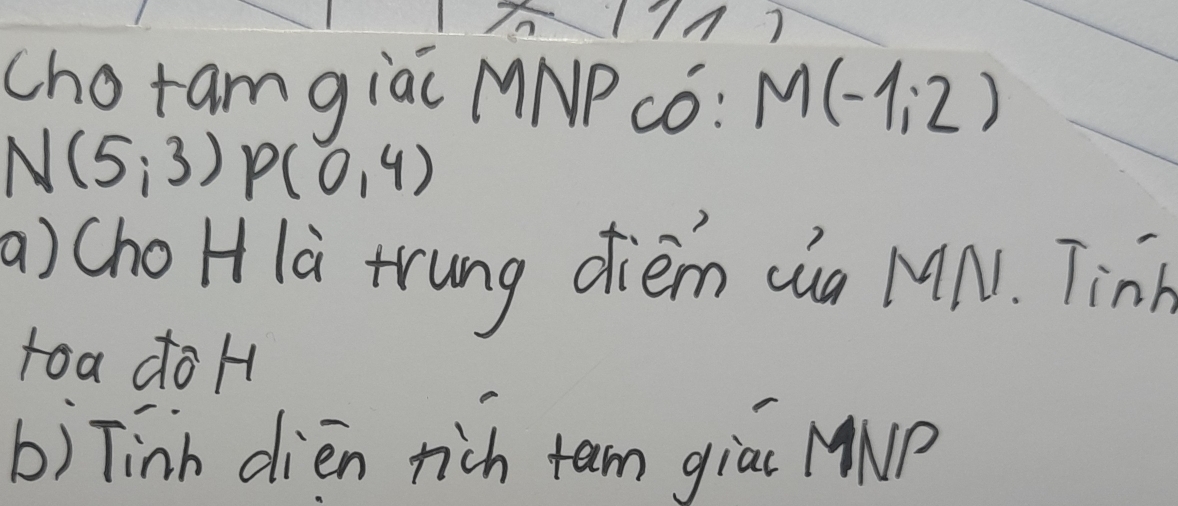 Cho tam giác MNP có: M(-1;2)
N(5;3) P(0,4)
a) Cho H là trung điểm của MN. Tính
toạ độ H
b) Tính diện tích tam giác MNP